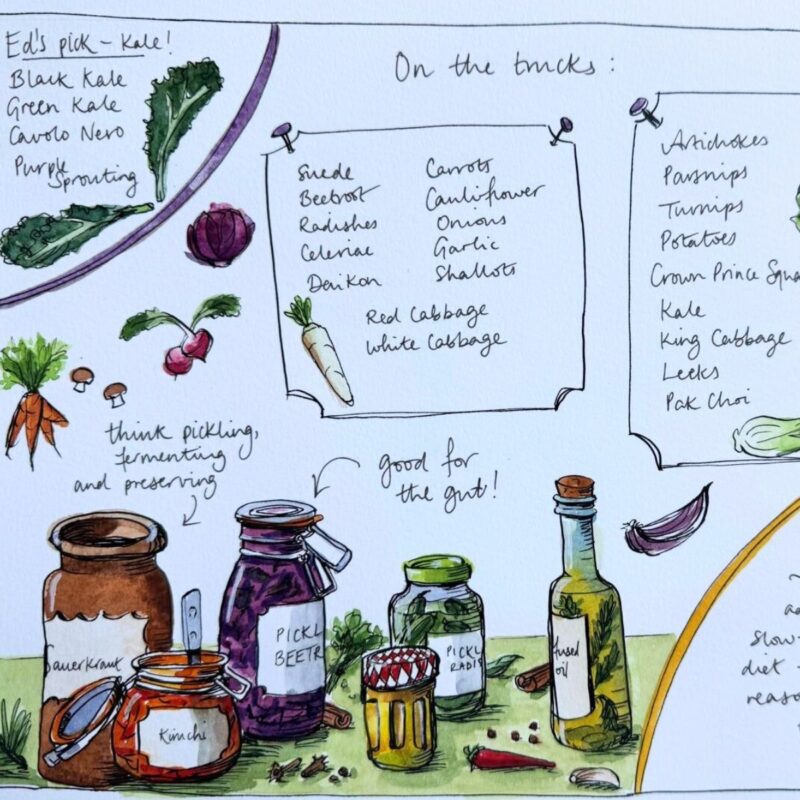 Ed's pick - Kale!
Black Kale
Green Kale
Cavolo Nero
Purple
Sprouting
On the trucks:
Suede
Beetroot
Radishes
Celeriac
Daikon
Carrots
Cauliflower
Onions
Garlic
Shallots
Red Cabbage
White Cabbage
Artichokes
Parsnips
Turnips
Potatoes
Crown Prince Squa
Kale
King Cabbage
Leeks
Pak Choi
think pickling,
fermenting
and preserving
good for
the gut!
Sauerkraut
Kimchi
PICKL
BEETR
PICKL
RADIS
fused
oil
slow-
diet -
reaso